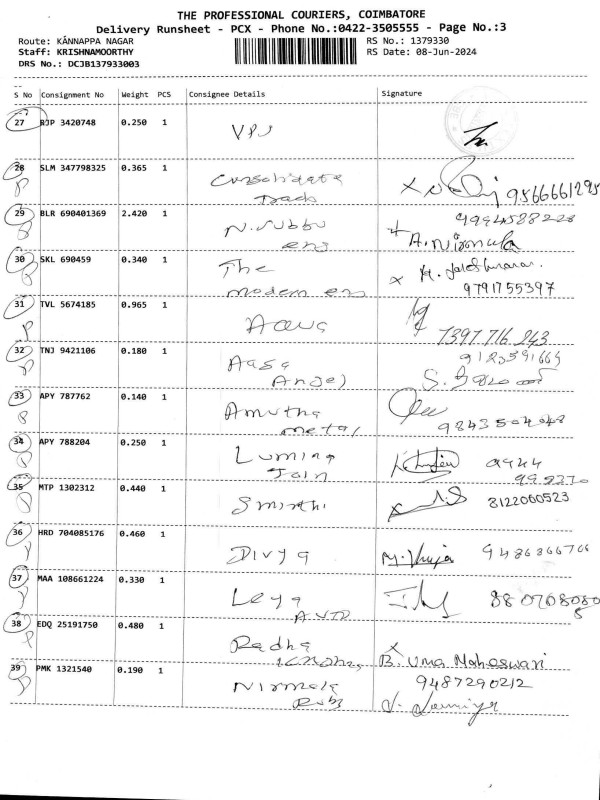 THE PROFESSIONAL COURIERS, COIMBATORE
Delivery Runsheet - PCX - Phone No.:0422-3505555 - Page No.:3
Route: KANNAPPA NAGAR RS No.: 1379330
Staff: KRISHNAMOORTHY RS Date: 08-Jun-2024
DRS No.: DCJB137933003
S No Consignment No Weight PCS Consignee Details Signature
27 RJP 3420748 0.250 1 VPS
28 SLM 347798325 0.365 1 9566661295
BLR 690401369 2.420 1 N. Subbu
29 eng A. Nirmala
30 SKL 690459 0.340 1 The
modern eng 9791755397
31 TVL 5674185 0.965 1
7397 716 243
32 TNJ 9421106 0.180 1 Aasa
Angel
33 APY 787762 0.140 1 Amutha
metal
34 APY 788204 0.250 1 Lumina
Jain
35 MTP 1302312 0.440 1 Smirthi 8122060523
36 HRD 704085176 0.460 1 Divya
37 MAA 108661224 0.330 1 Leya
Auto
38 EDQ 25191750 0.480 1 Radha
B. Uma Maheswari
39 PMK 1321540 0.190 1 Nirmala 9487290212